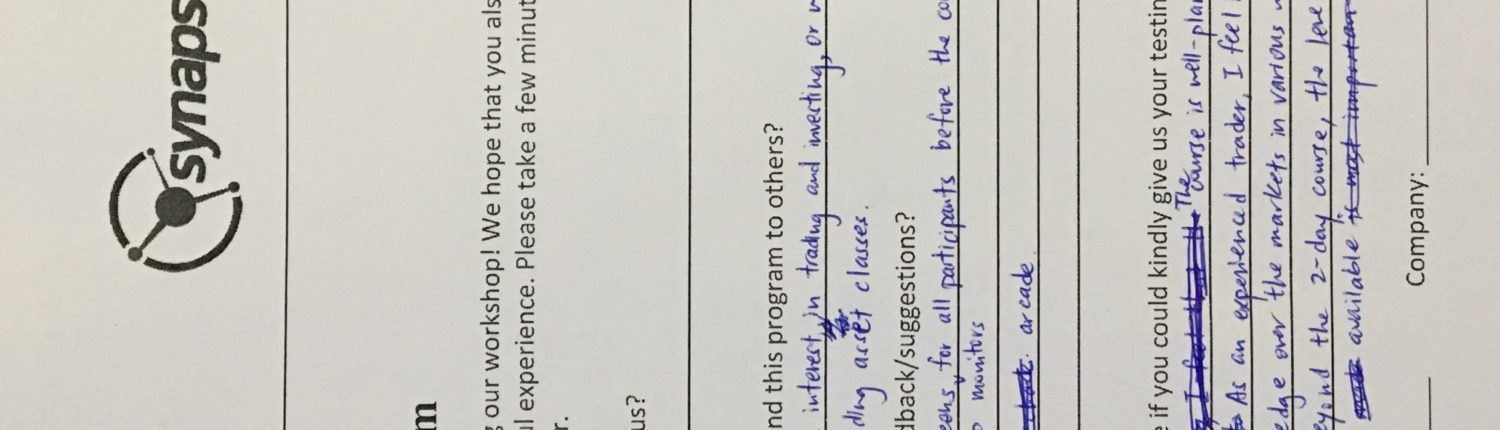 synaps
m
g our workshop! We hope that you als
l experience. Please take a few minut
r.
us?
nd this program to others?
interest in trading and investing, or
ding asset classes.
dback/suggestions?
for all participants before the co
monitors
arcade.
e if you could kindly give us your testin
The course is well-plan
As an experienced trader, I feel
edge over the markets in various
eyond the 2-day course, the leve
available is most important
Company: